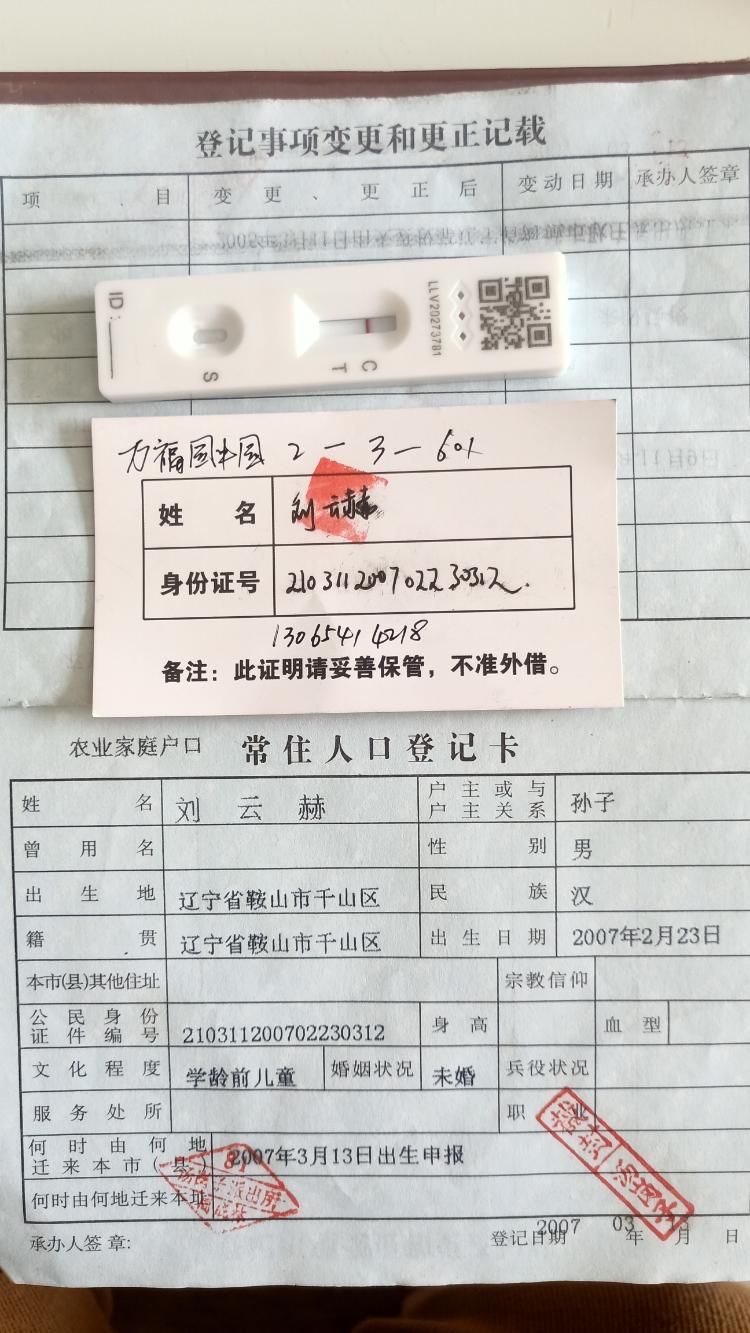 登记事项变更和更正记载
项 目 变更、更正后 变动日期 承办人签章
ID:
S
C
T
LLV20273781
万福国中园 2-3-601
姓 名 刘云赫
身份证号 210311200702230312
13065414218
备注：此证明请妥善保管，不准外借。
农业家庭户口 常住人口登记卡
姓 名 刘云赫 户主或与户主关系 孙子
曾用名 性别 男
出生地 辽宁省鞍山市千山区 民族 汉
籍贯 辽宁省鞍山市千山区 出生日期 2007年2月23日
本市(县)其他住址 宗教信仰
公民身份证件编号 210311200702230312 身高 血型
文化程度 学龄前儿童 婚姻状况 未婚 兵役状况
服务处所 职业
何时由何地迁来本市(县) 2007年3月13日出生申报
何时由何地迁来本址
承办人签章: 登记日期 2007年 03月 日